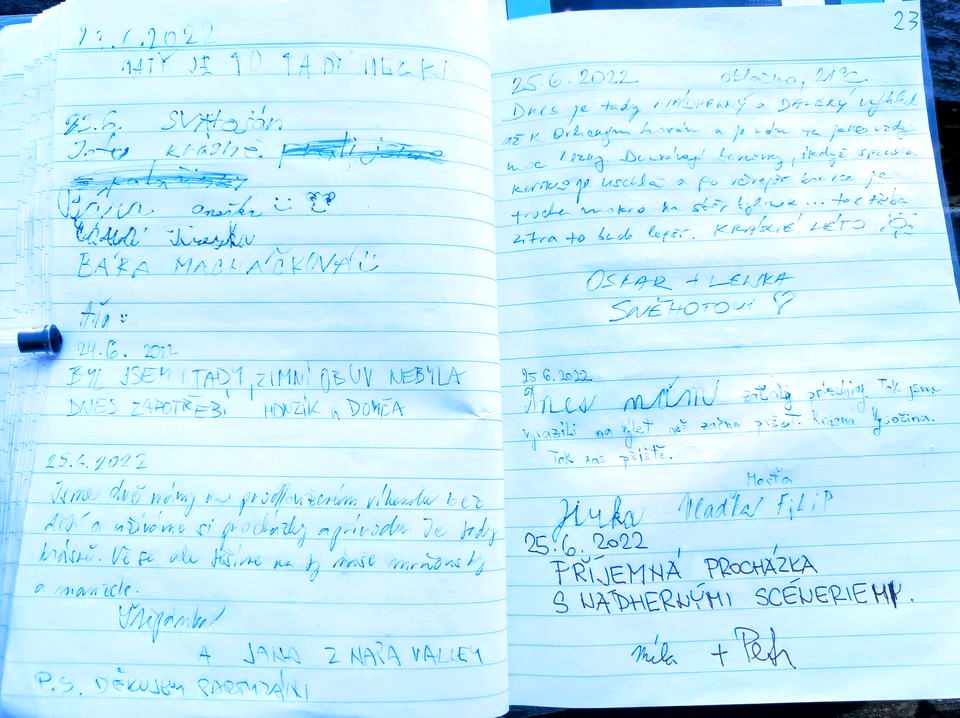 .6.2022
JE TADY
22.6. SVATOJÁN
krásně.
Anežka
BÁRA MACHÁČKOVÁ
24.6. 2022
BYL JSEM I TADY, ZIMNÍ OBUV NEBYLA
DNES ZAPOTŘEBÍ HONZÍK a DOMČA
25.6.2022
Jsme dvě mámy na prodlouženém víkendu bez
dětí a užíváme si procházky a přírodu. Je tady
krásně. Už se ale těšíme na ty naše
a manžele.
Štěpánka
A JANA Z VALLEY
P.S. DĚKUJEM PARTYZÁNI
23
25.6.2022 oblačno, 21°C.
Dnes je tady NÁDHERNÝ a DALEKÝ výhled
až k Orlickým horám a je vám to jako vždy
moc Dozrávají i když spousta
je uschlá a po včerejší bouřce je
trochu mokro na sběr bylinek... tak třeba
zítra to bude lepší. KRÁSNÉ LÉTO
OSKAR + LENKA
SNĚHOTOVI
25.6.2022
Dnes nám začaly prázdniny. Tak jsme
vyrazili na výlet než začne pršet. Krásná Vysočina.
Tak zas příště.
Jirka Vlaďka FiLiP
25.6.2022
PŘÍJEMNÁ PROCHÁZKA
S NÁDHERNÝMI SCÉNERIEMI.
Míla + Petr